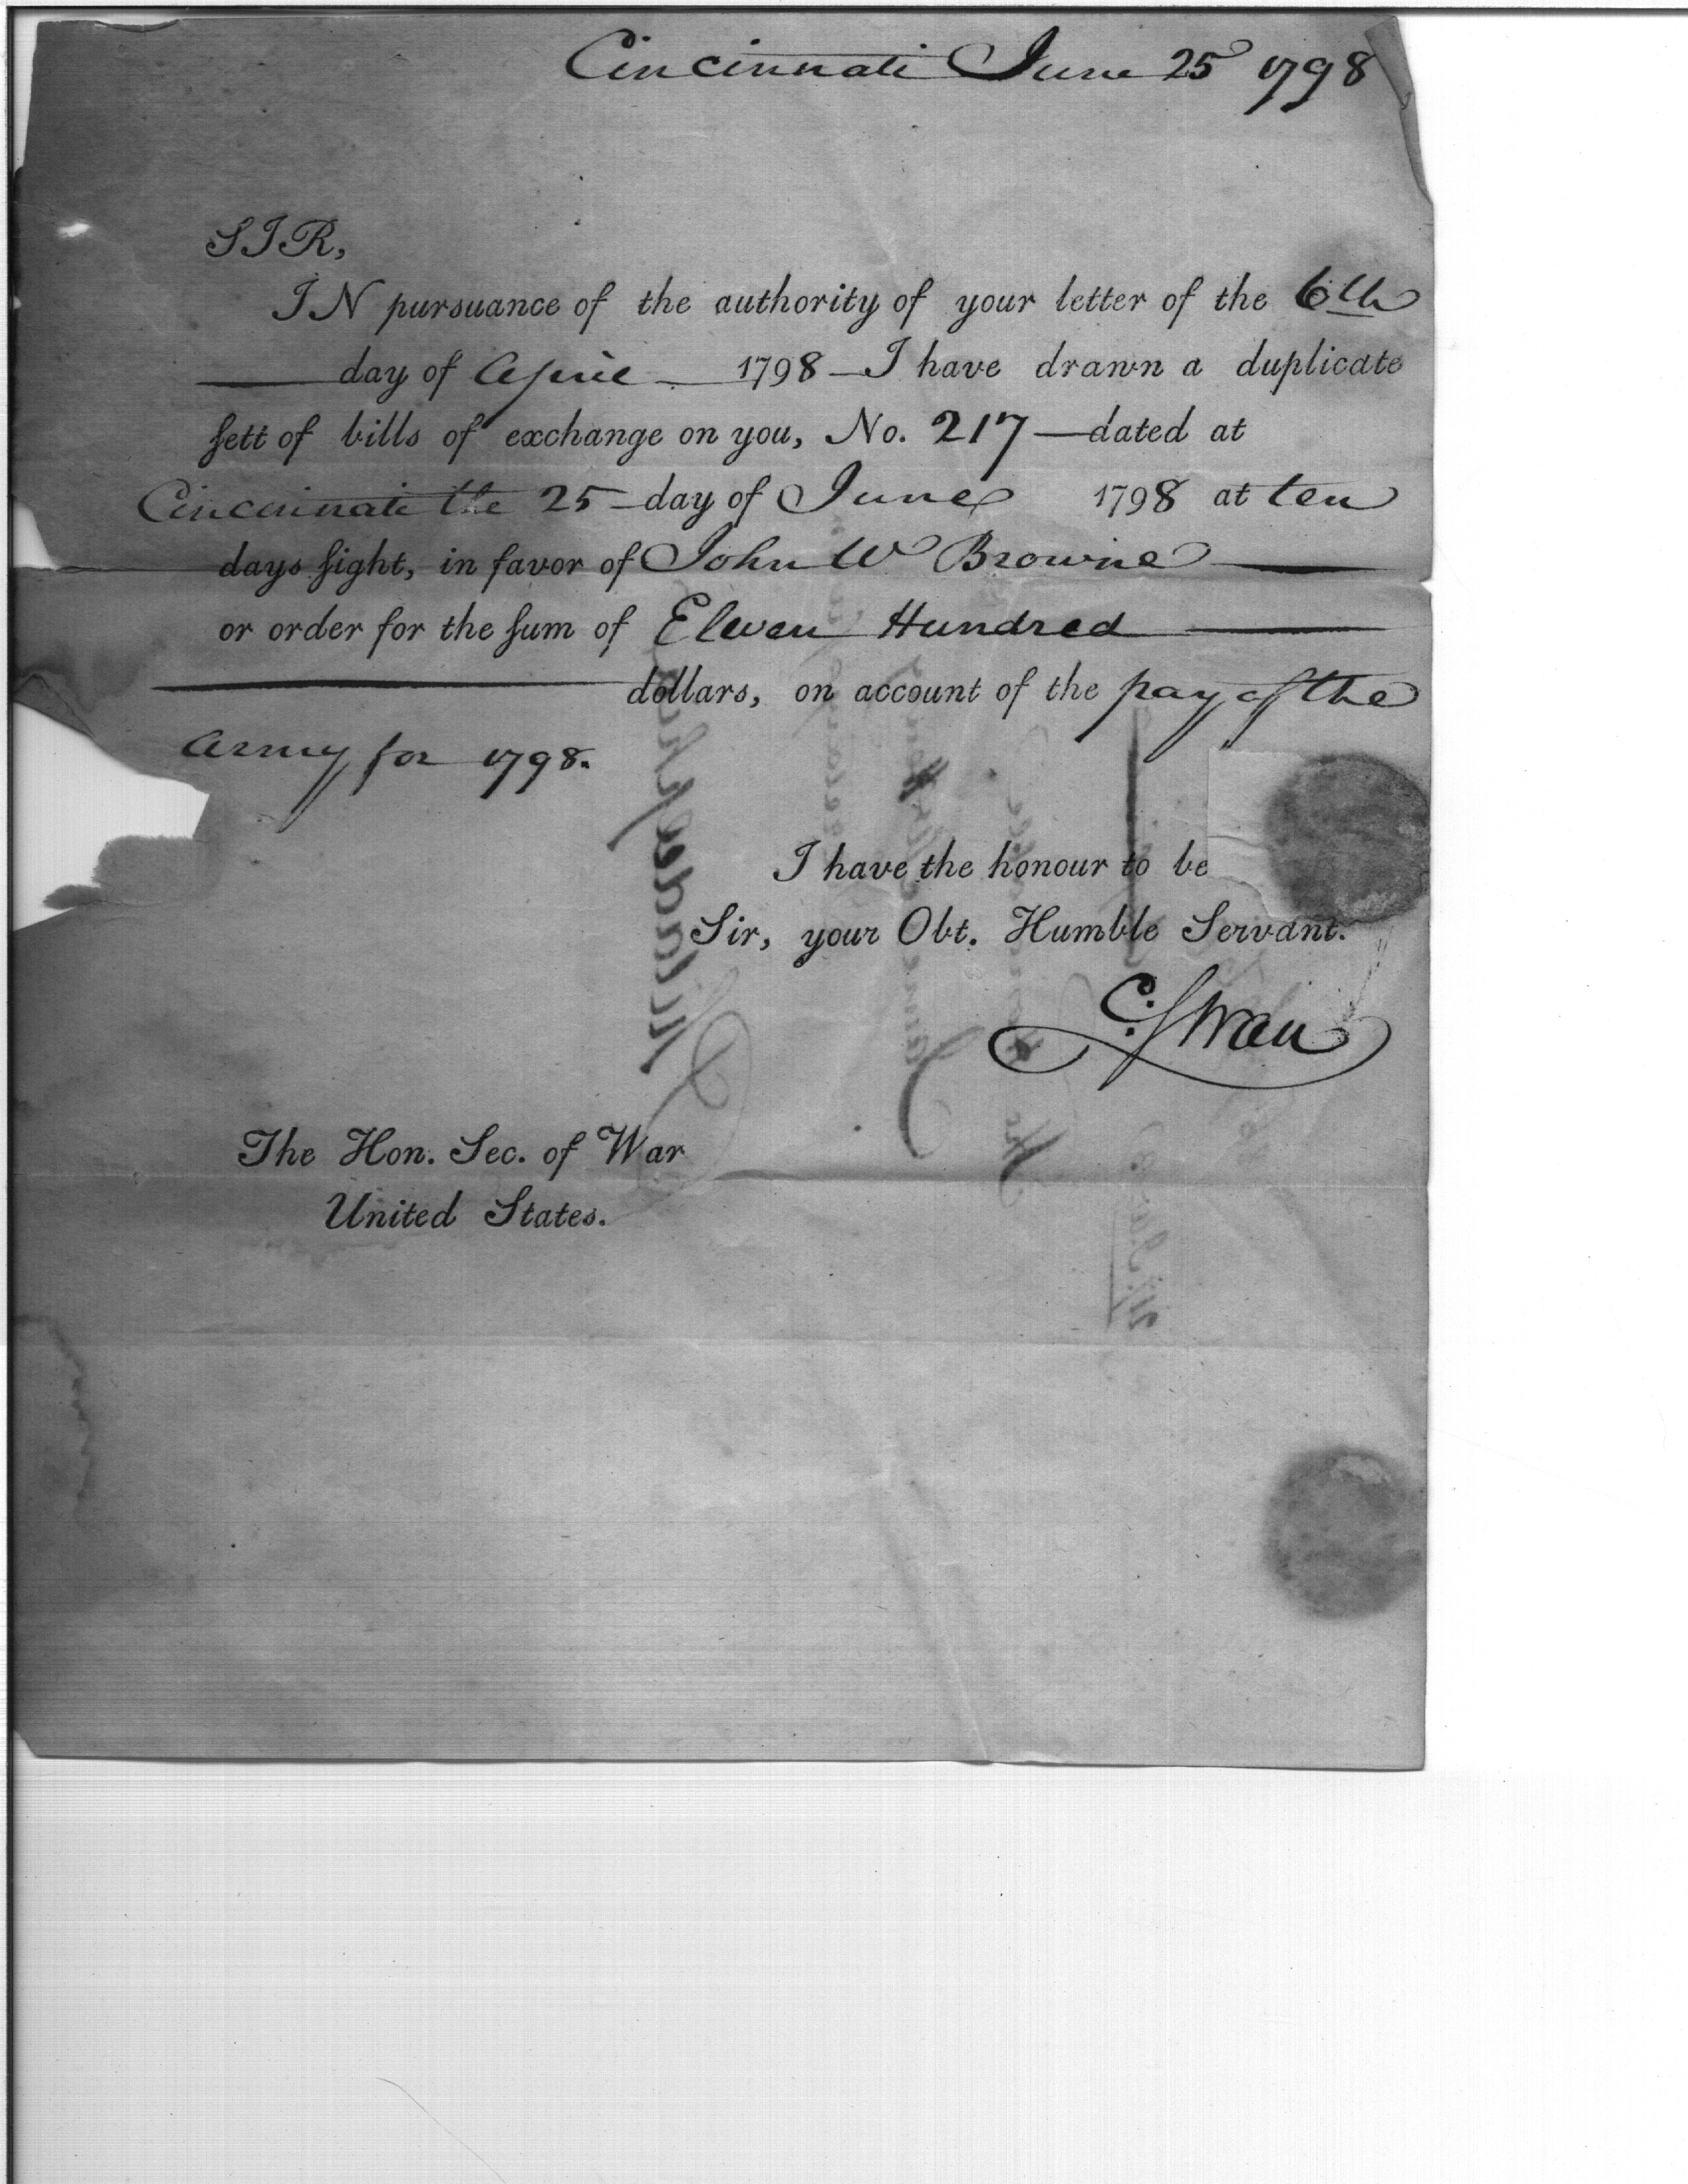 Cincinnati June 25 1798
SIR,
IN pursuance of the authority of your letter of the 6th
day of April 1798 I have drawn a duplicate
sett of bills of exchange on you, No. 217 dated at
Cincinnati the 25 day of June 1798 at ten
days sight, in favor of John W Browne
or order for the sum of Eleven Hundred
dollars, on account of the pay of the
Army for 1798.
I have the honour to be
Sir, your Obt. Humble Servant.
C. Swan
The Hon. Sec. of War
United States.